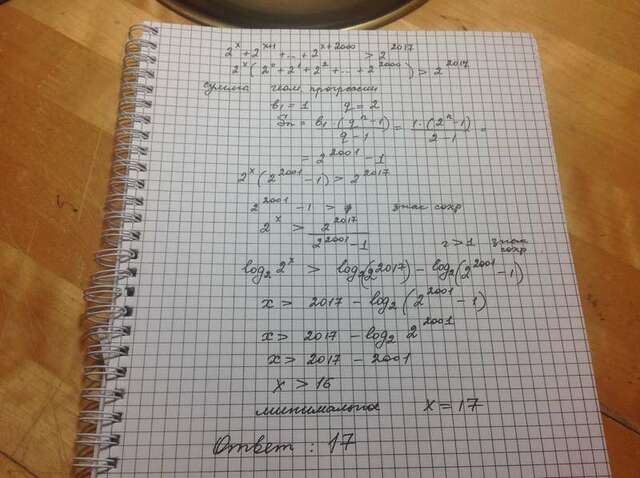 2^x + 2^(x+1) + ... + 2^(x+2000) > 2^2017
2^x (2^0 + 2^1 + 2^2 + ... + 2^2000) > 2^2017
сумма геом. прогрессии
b₁ = 1 q = 2
Sn = b₁·(q^n - 1)/(q - 1) = 1·(2^n - 1)/(2 - 1) =
= 2^2001 - 1
2^x (2^2001 - 1) > 2^2017
2^2001 - 1 > знак сохр
2^x > 2^2017/(2^2001 - 1)
2 > 1 знак сохр.
log₂ 2^x > log₂(2^2017) - log₂(2^2001 - 1)
x > 2017 - log₂(2^2001 - 1)
x > 2017 - log₂ 2^2001
x > 2017 - 2001
x > 16
x = 17
Ответ: 17